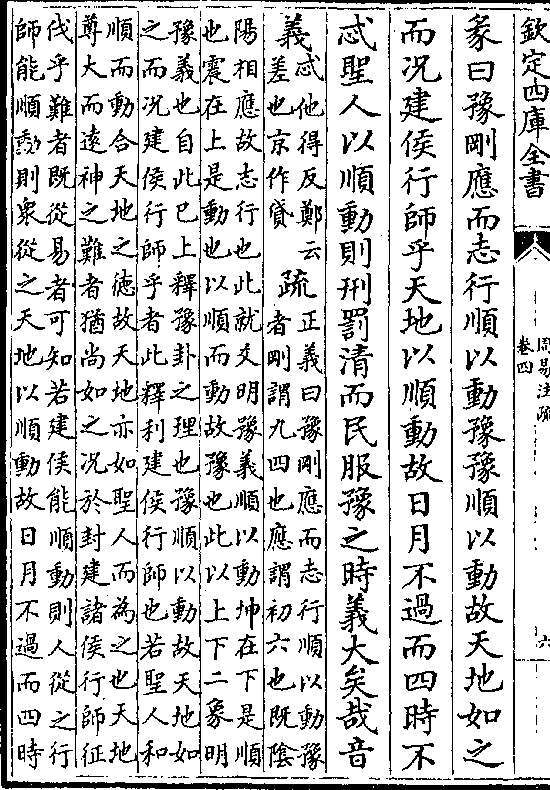 欽定四庫全書
周易注疏
卷四
六
彖曰豫剛應而志行順以動豫豫順以動故天地如之
而況建侯行師乎天地以順動故日月不過而四時不
忒聖人以順動則刑罰清而民服豫之時義大矣哉音
義忒他得反鄭云
差也京作貸
疏正義曰豫剛應而志行順以動豫
者剛謂九四也應謂初六也既陰
陽相應故志行也此就爻明豫義順以動坤在下是順
也震在上是動也以順而動故豫也此以上下二象明
豫義也自此已上釋豫卦之理也豫順以動故天地如
之而況建侯行師乎者此釋利建侯行師也若聖人和
順而動合天地之德故天地亦如聖人而為之也天地
尊大而遠神之難者猶尚如之況於封建諸侯行師征
伐乎難者既從易者可知若建侯能順動則人從之行
師能順動則衆從之天地以順動故日月不過而四時